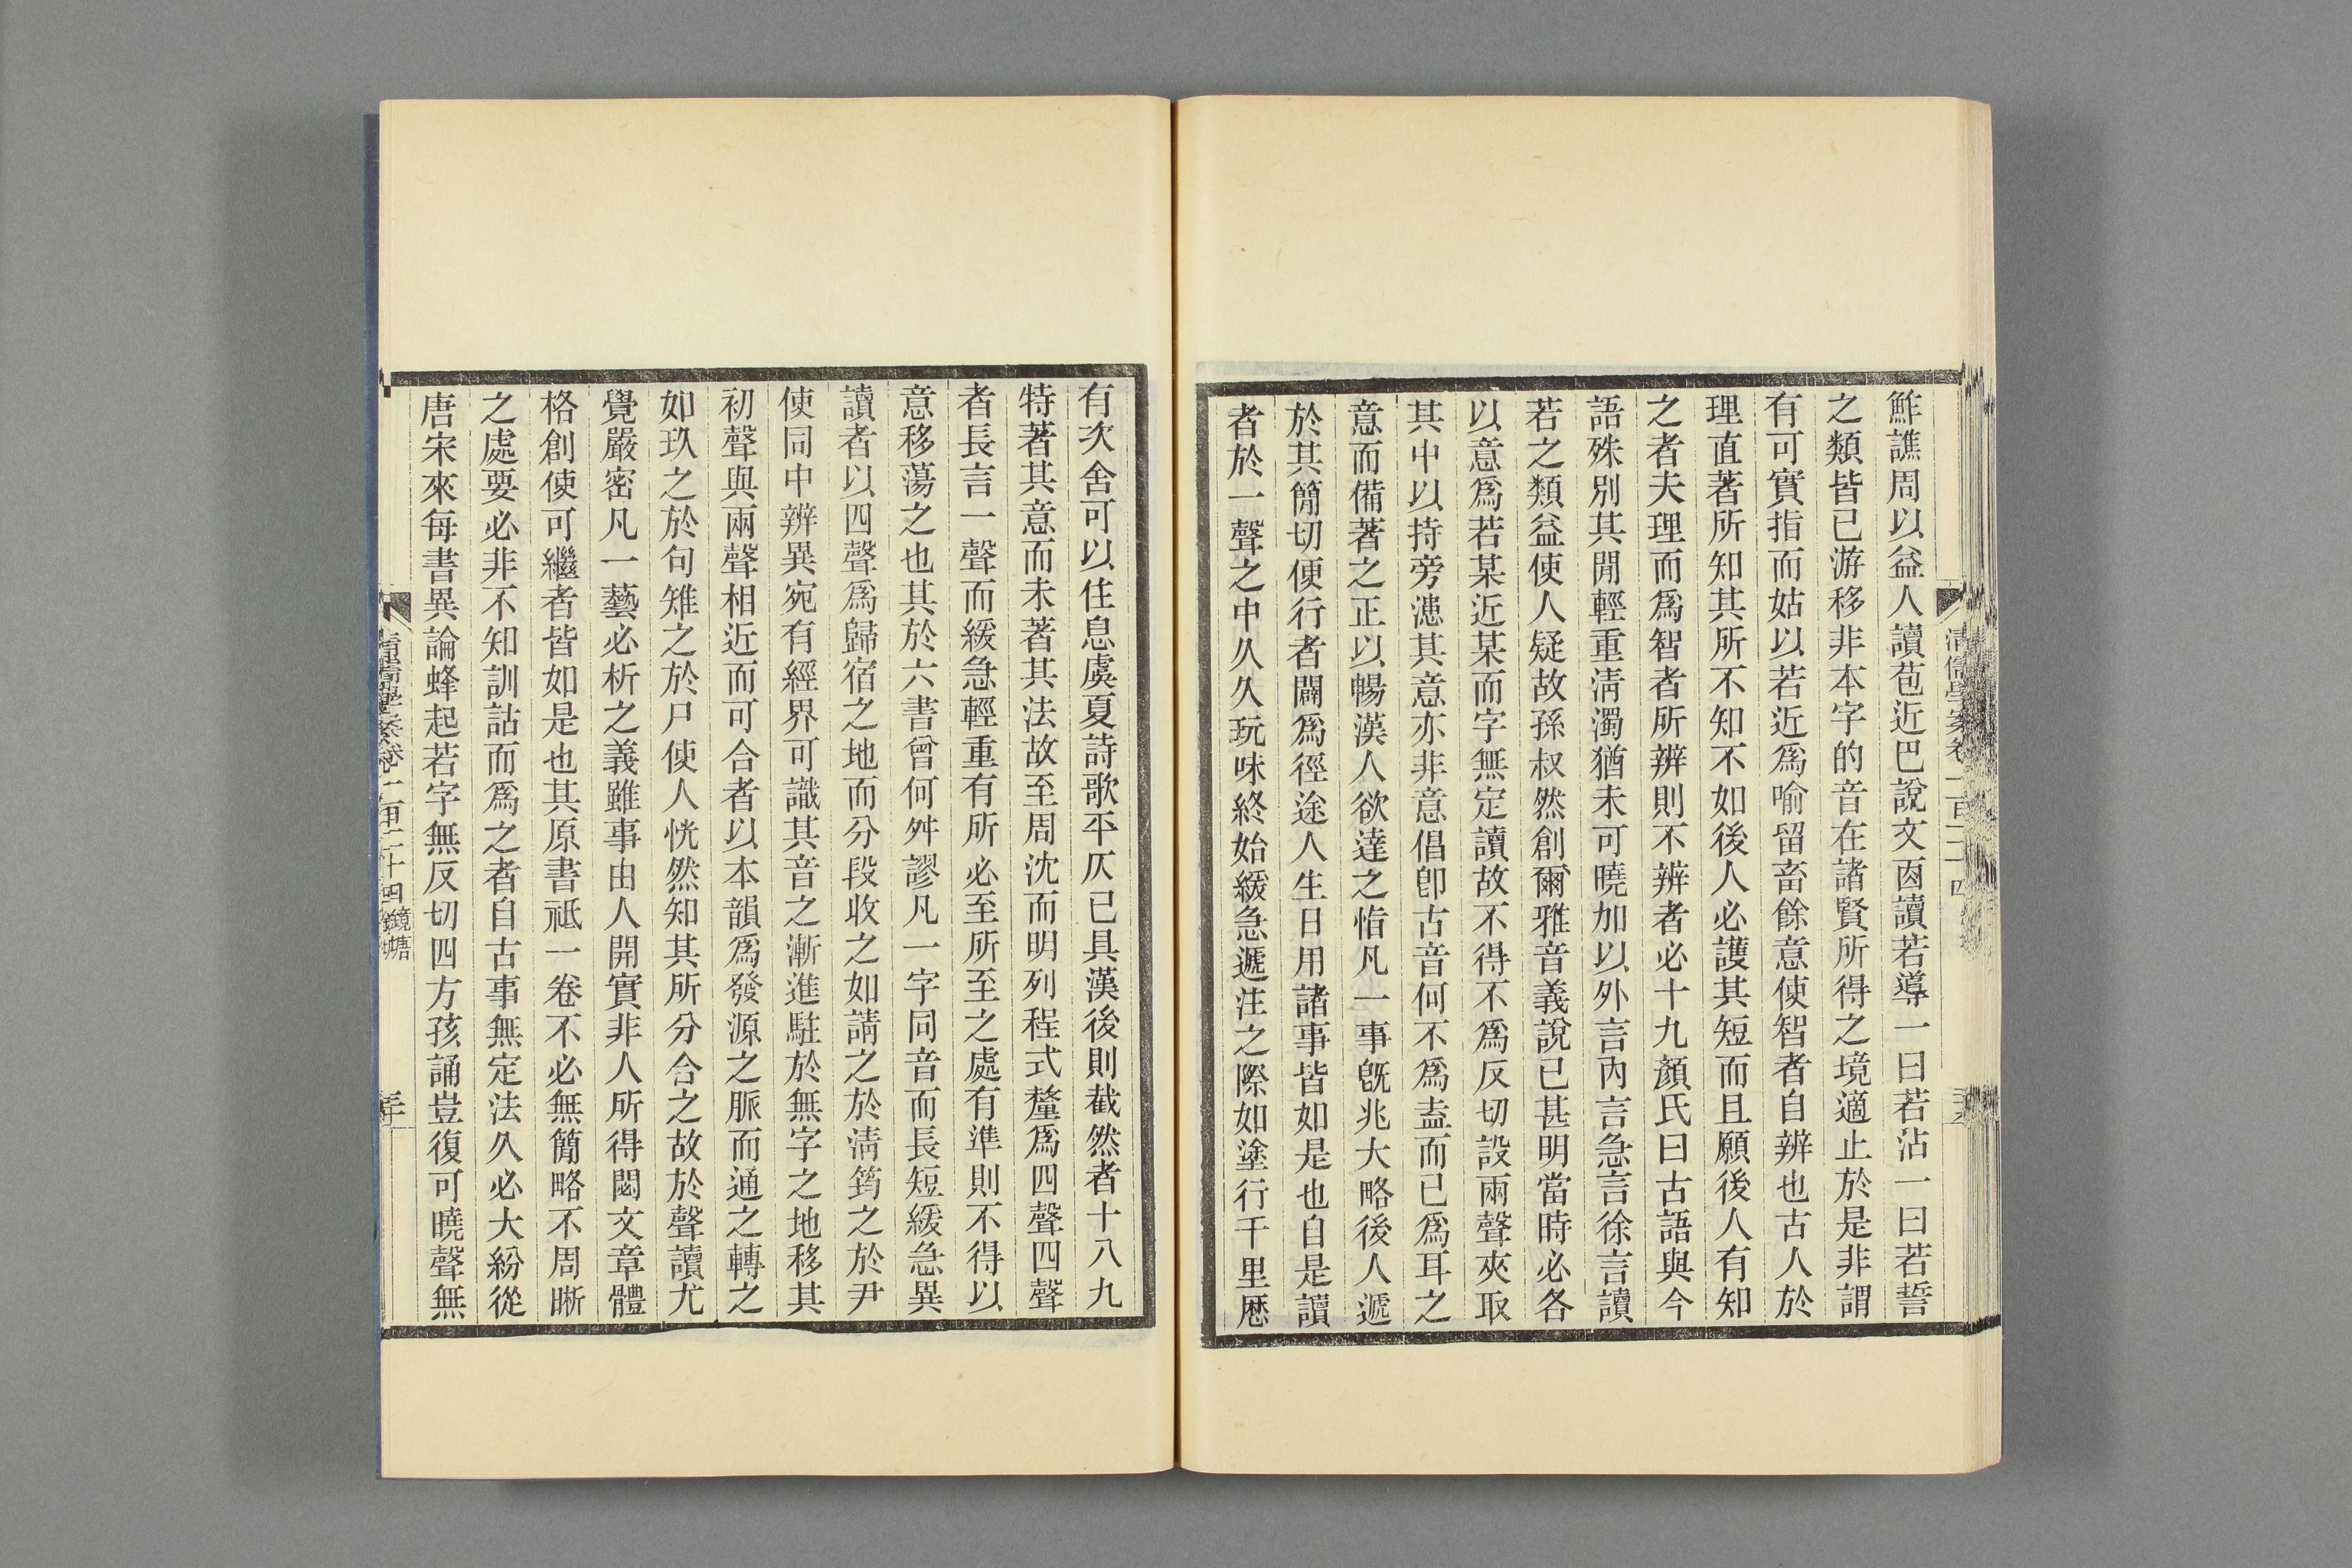 清儒學案卷一百二十四
鮓譙周以益人讀苞近巴說文㐁讀若導一曰若沾一曰若誓
之類皆已游移非本字的音在諸賢所得之境適止於是非謂
有可實指而姑以若近爲喻留畜餘意使智者自辨也古人於
理直著所知其所不知不如後人必護其短而且願後人有知
之者夫理而爲智者所辨則不辨者必十九顏氏曰古語與今
語殊別其閒輕重淸濁猶未可曉加以外言內言急言徐言讀
若之類益使人疑故孫叔然創爾雅音義說已甚明當時必各
以意爲若某近某而字無定讀故不得不爲反切設兩聲夾取
其中以持旁漶其意亦非意倡卽古音何不爲盍而已爲耳之
意而備著之正以暢漢人欲達之恉凡一事旣兆大略後人遞
於其簡切便行者闢爲徑途人生日用諸事皆如是也自是讀
者於一聲之中久久玩味終始緩急遞注之際如塗行千里厯
有次舍可以住息虞夏詩歌平仄已具漢後則截然者十八九
特著其意而未著其法故至周沈而明列程式釐爲四聲四聲
者長言一聲而緩急輕重有所必至所至之處有準則不得以
意移蕩之也其於六書曾何舛謬凡一字同音而長短緩急異
讀者以四聲爲歸宿之地而分段收之如請之於淸筠之於尹
使同中辨異宛有經界可識其音之漸進駐於無字之地移其
初聲與兩聲相近而可合者以本韻爲發源之脈而通之轉之
如玖之於句雉之於尸使人恍然知其所分合之故於聲讀尤
覺嚴密凡一藝必析之義雖事由人開實非人所得閟文章體
格創使可繼者皆如是也其原書祗一卷不必無簡略不周晰
之處要必非不知訓詁而爲之者自古事無定法久必大紛從
唐宋來每書異論蜂起若字無反切四方孩誦豈復可曉聲無
清儒學案卷一百二十四 鏡塘